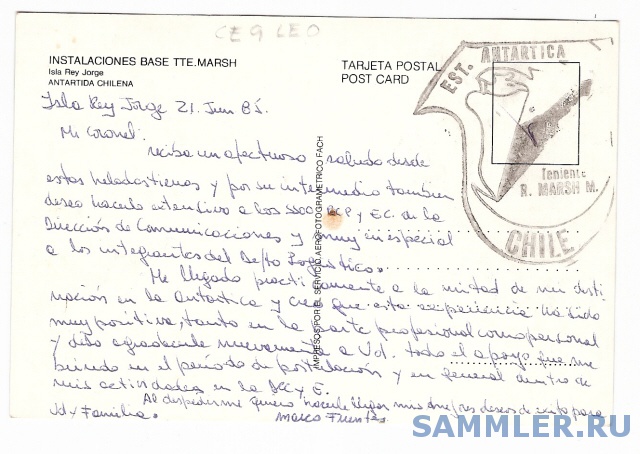 CE9LEO
INSTALACIONES BASE TTE. MARSH
Isla Rey Jorge
ANTARTIDA CHILENA
TARJETA POSTAL
POST CARD
EST. ANTARTICA
Teniente
R. MARSH M.
CHILE
IMPRESOS POR EL SERVICIO AEROFOTOGRAMETRICO FACH
Isla Rey Jorge 21. Jun 85.
Mi Coronel:
reciba un afectuoso saludo desde
estas heladas tierras y por su intermedio tambien
deseo hacerlo extensivo a los y EC. de la
Dirección de Comunicaciones y muy en especial
a los integrantes del Depto Logístico.
He llegado practicamente a la mitad de mi desti
nación en la Antartica y creo que esta experiencia ha sido
muy positiva, tanto en la parte profesional como personal
y debo agradecerle nuevamente a Ud. todo el apoyo que me
brindo en el período de postulación y en general dentro de
mis actividades en la
Al despedirme quiero hacerle llegar mis mejores deseos de exito para
Ud y Familia.
Marco Fuentes
SAMMLER.RU